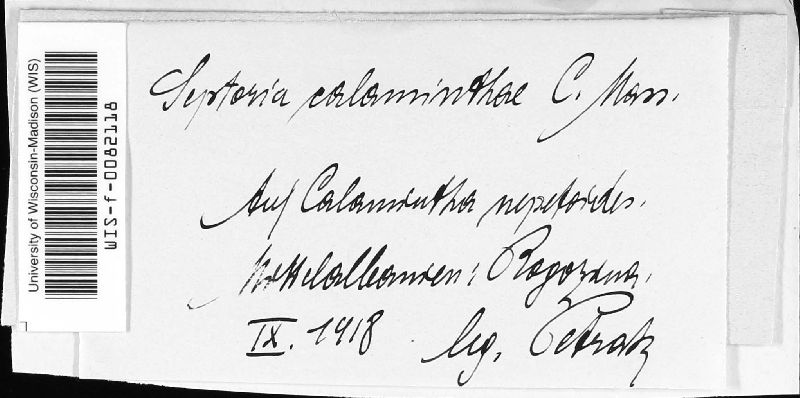 University of Wisconsin-Madison (WIS)
WIS-f-0082118
Septoria calaminthae C. Mass.
Auf Calamintha nepetoides.
Mittelalbanien: Rogozina.
IX. 1918 leg. Petrak